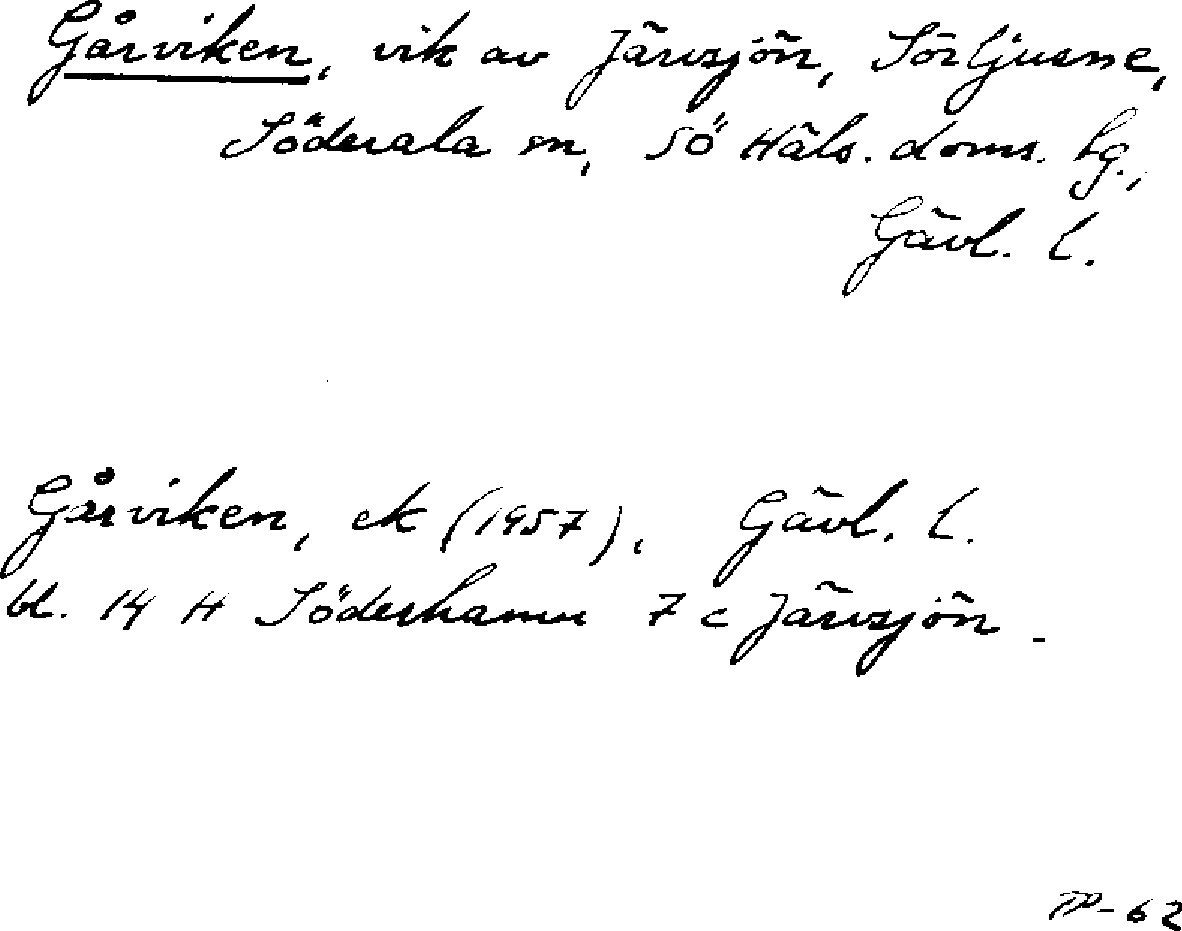 Gårviken, vik av Järvsjön, Sörljusne,
Söderala sn, Sö Häls. doms. tg.,
Gävl. l.
Gårviken, ek (1957), Gävl. l.
bl. 14 H Söderhamn 7 c Järvsjön.
-62